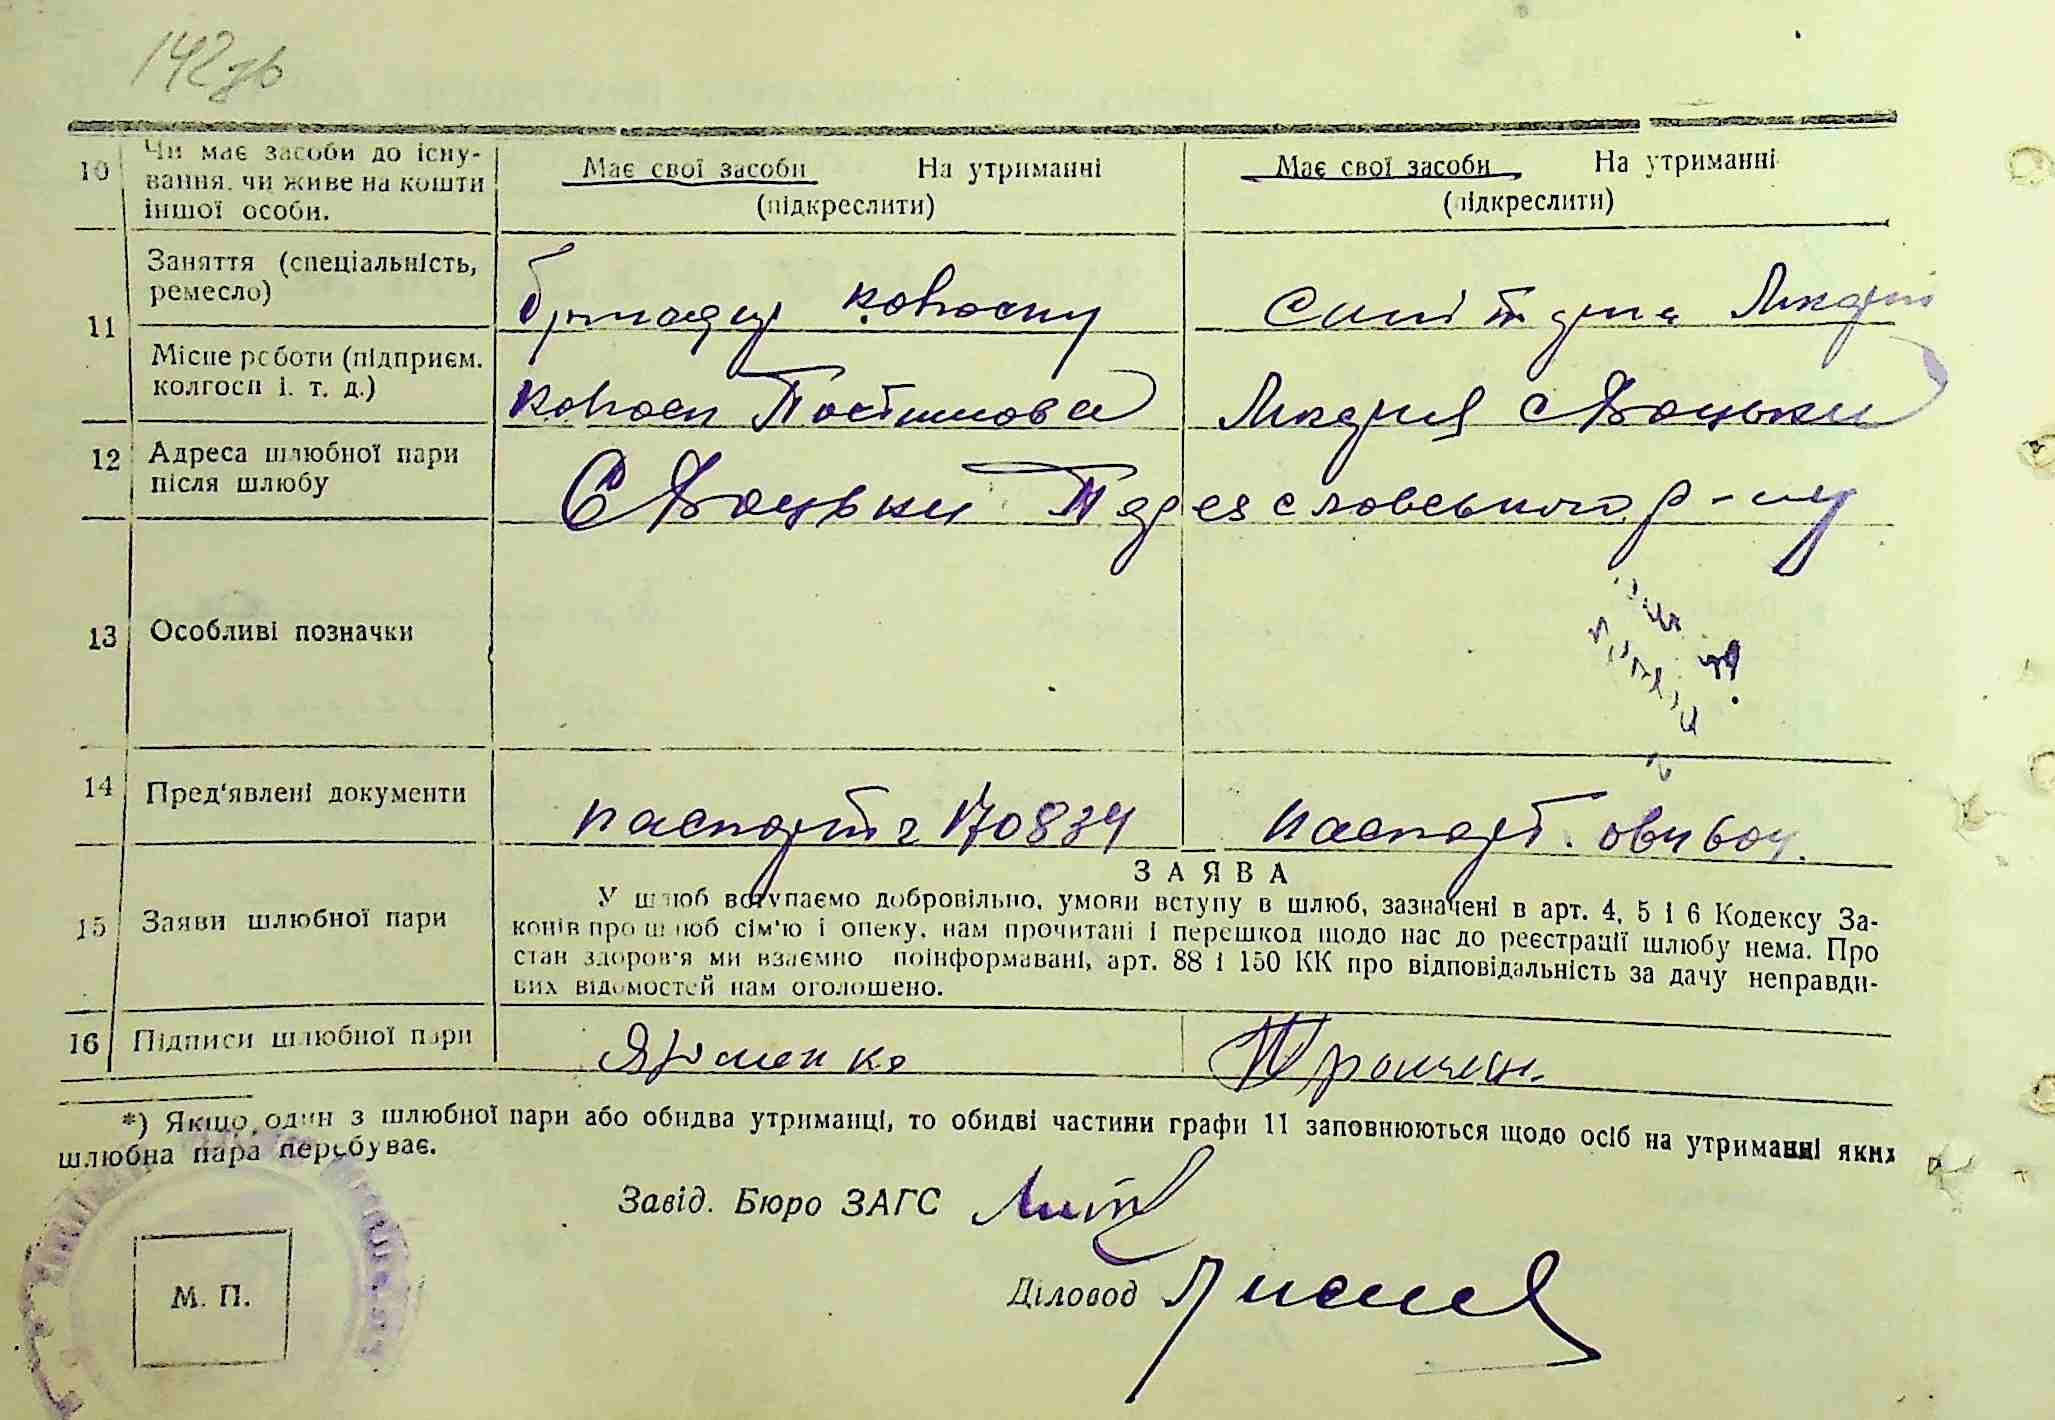 142зв
10 Чи має засоби до існу-
вання, чи живе на кошти
іншої особи.
Має свої засоби На утриманні
(підкреслити)
Має свої засоби На утриманні
(підкреслити)
11 Заняття (спеціальність,
ремесло)
бригадир колгоспу
Місце роботи (підприєм.
колгосп і. т. д.)
колгосп Постишова
12 Адреса шлюбної пари
після шлюбу
С Воцьки р-ну
13 Особливі позначки
14 Пред'явлені документи
паспорт 170834
паспорт
15 Заяви шлюбної пари
ЗАЯВА
У шлюб вступаємо добровільно, умови вступу в шлюб, зазначені в арт. 4, 5 і 6 Кодексу За-
конів про шлюб сім'ю і опеку, нам прочитані і перешкод щодо нас до реєстрації шлюбу нема. Про
стан здоров'я ми взаємно поінформавані, арт. 88 і 150 КК про відповідальність за дачу неправди-
вих відомостей нам оголошено.
16 Підписи шлюбної пари
Яременко
*) Якщо, один з шлюбної пари або обидва утриманці, то обидві частини графи 11 заповнюються щодо осіб на утриманні яких
шлюбна пара перебуває.
Завід. Бюро ЗАГС
Діловод
М. П.